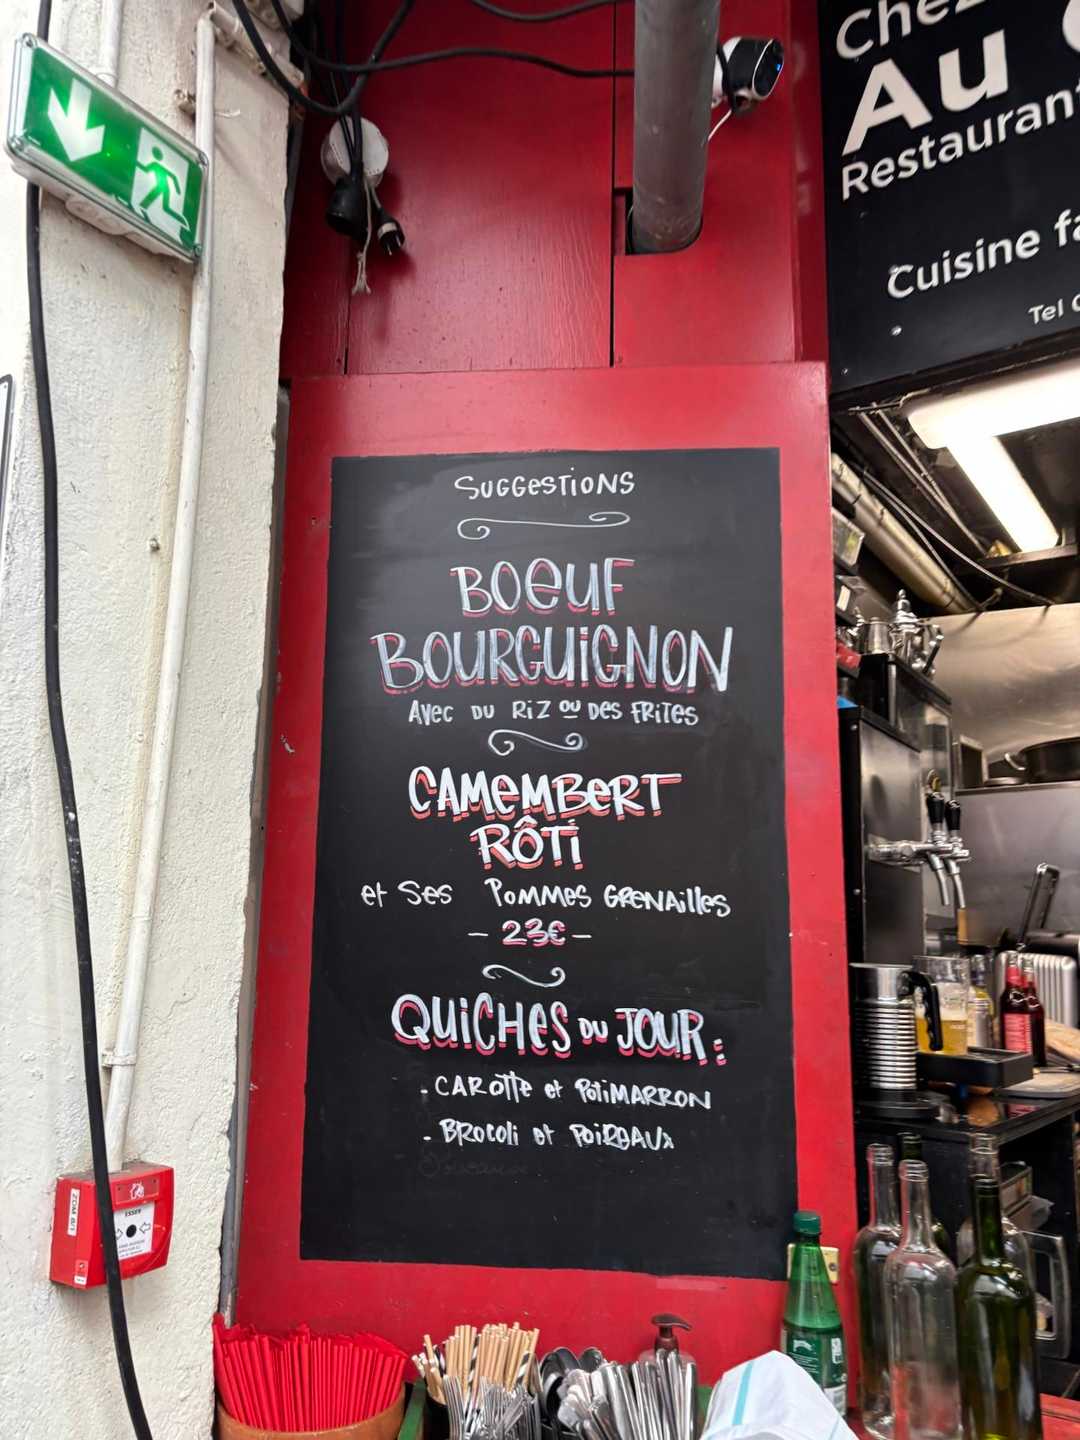 Chez
Au
Restaurant
Cuisine fa
Tel
SUGGESTIONS
BOEUF
BOURGUIGNON
AVEC DU RIZ OU DES FRITES
CAMEMBERT
RÔTI
et SES POMMES GRENAILLES
- 23€ -
QUICHES DU JOUR:
. CAROTTE et POTIMARRON
. BROCOLI et POIREAUX
ESSER
ZDM 6/1